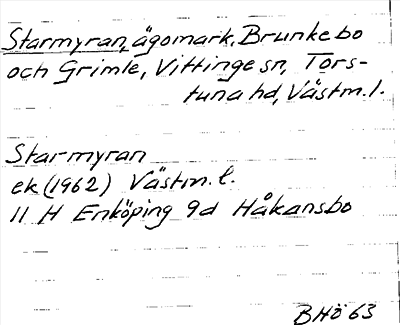 Starmyran, ägomark, Brunkebo
och Grimle, Vittinge sn, Tors-
tuna hd, Västm.l.
Starmyran
ek (1962) Västm.l.
11 H Enköping 9d Håkansbo
BHö 63